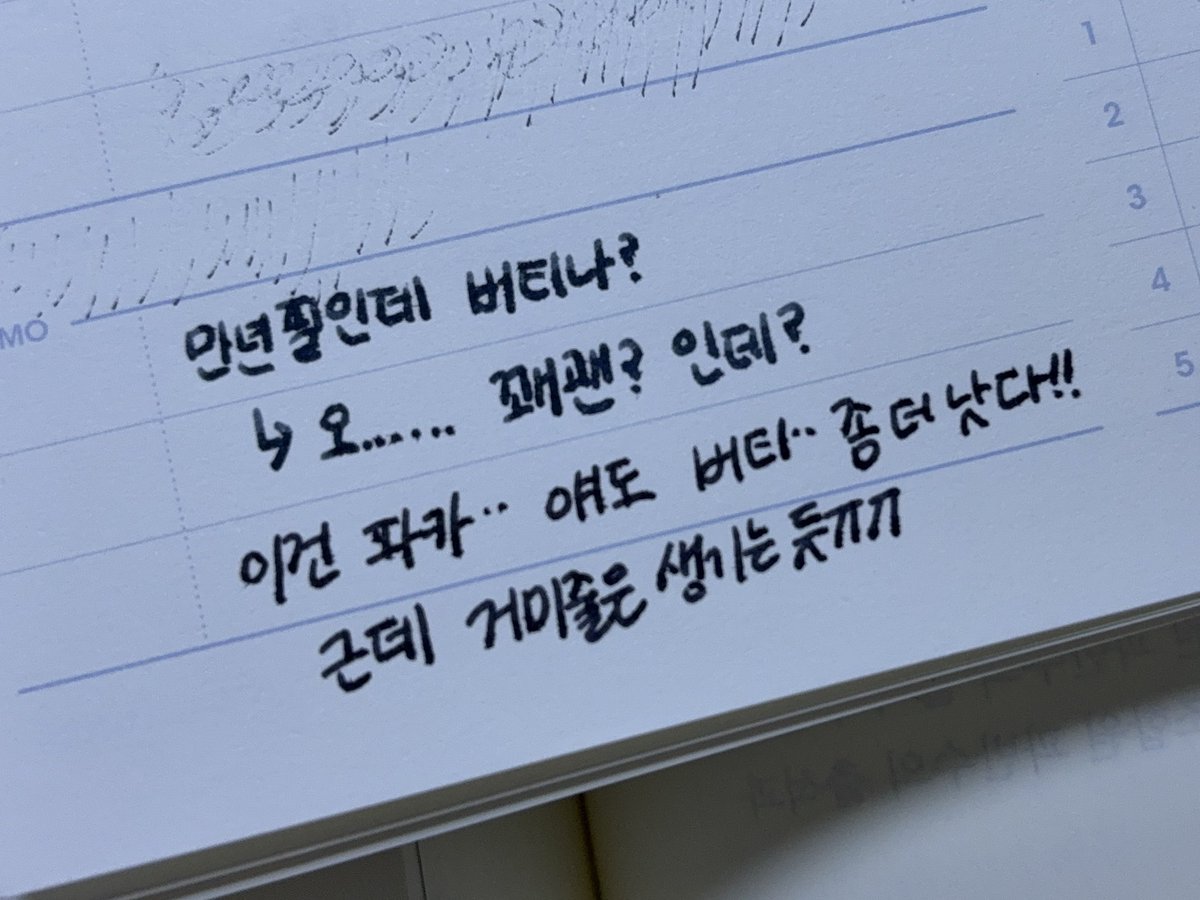 1
2
3
4
5
MO
만년필인데 버티나?
↳ 오...... 꽤괜? 인데?
이건 파카.. 얘도 버티.. 좀 더 낫다!!
근데 거미줄은 생기는 듯ㅠㅠ